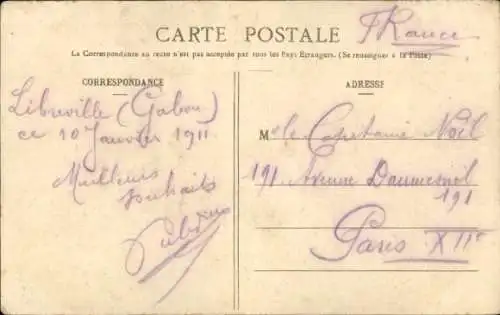 FRance
CARTE POSTALE
La Correspondance au recto n'est pas acceptée par tous les Pays Etrangers. (Se renseigner à la Poste)
CORRESPONDANCE
Libreville (Gabon)
ce 10 Janvier 1911
Meilleurs
souhaits
ADRESSE
M le Capitaine Noël
191 Avenue Daumesnil
191
Paris XIIe